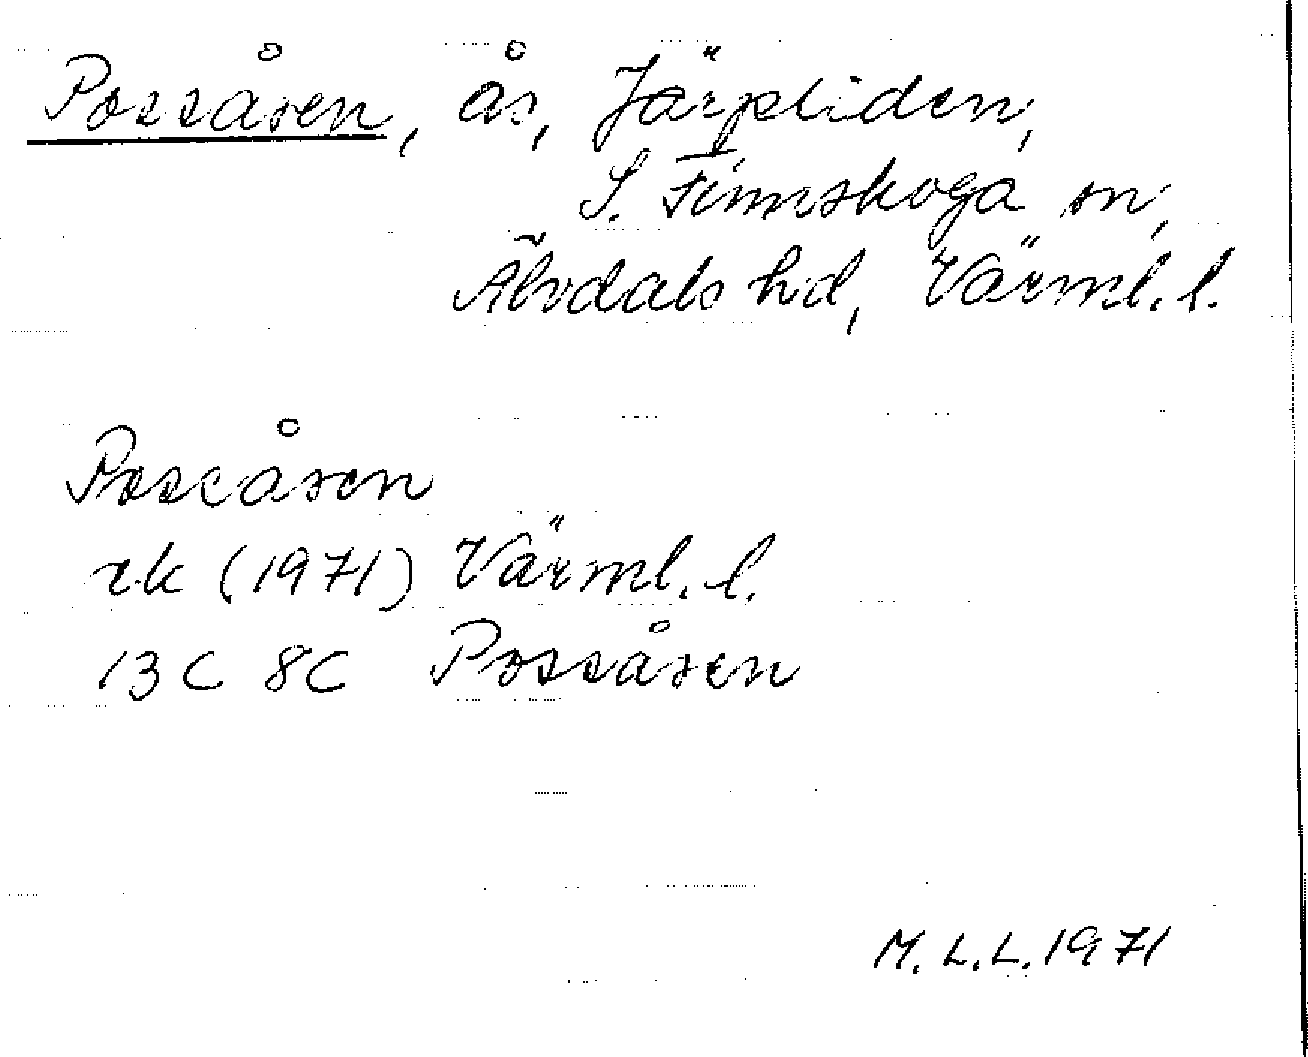 Possåsen, ås, Järpliden,
S. Finnskoga sn,
Älvdals hd, Värml. l.
Possåsen
rk (1971) Värml. l.
13C 8C Possåsen
M. L. L. 1971